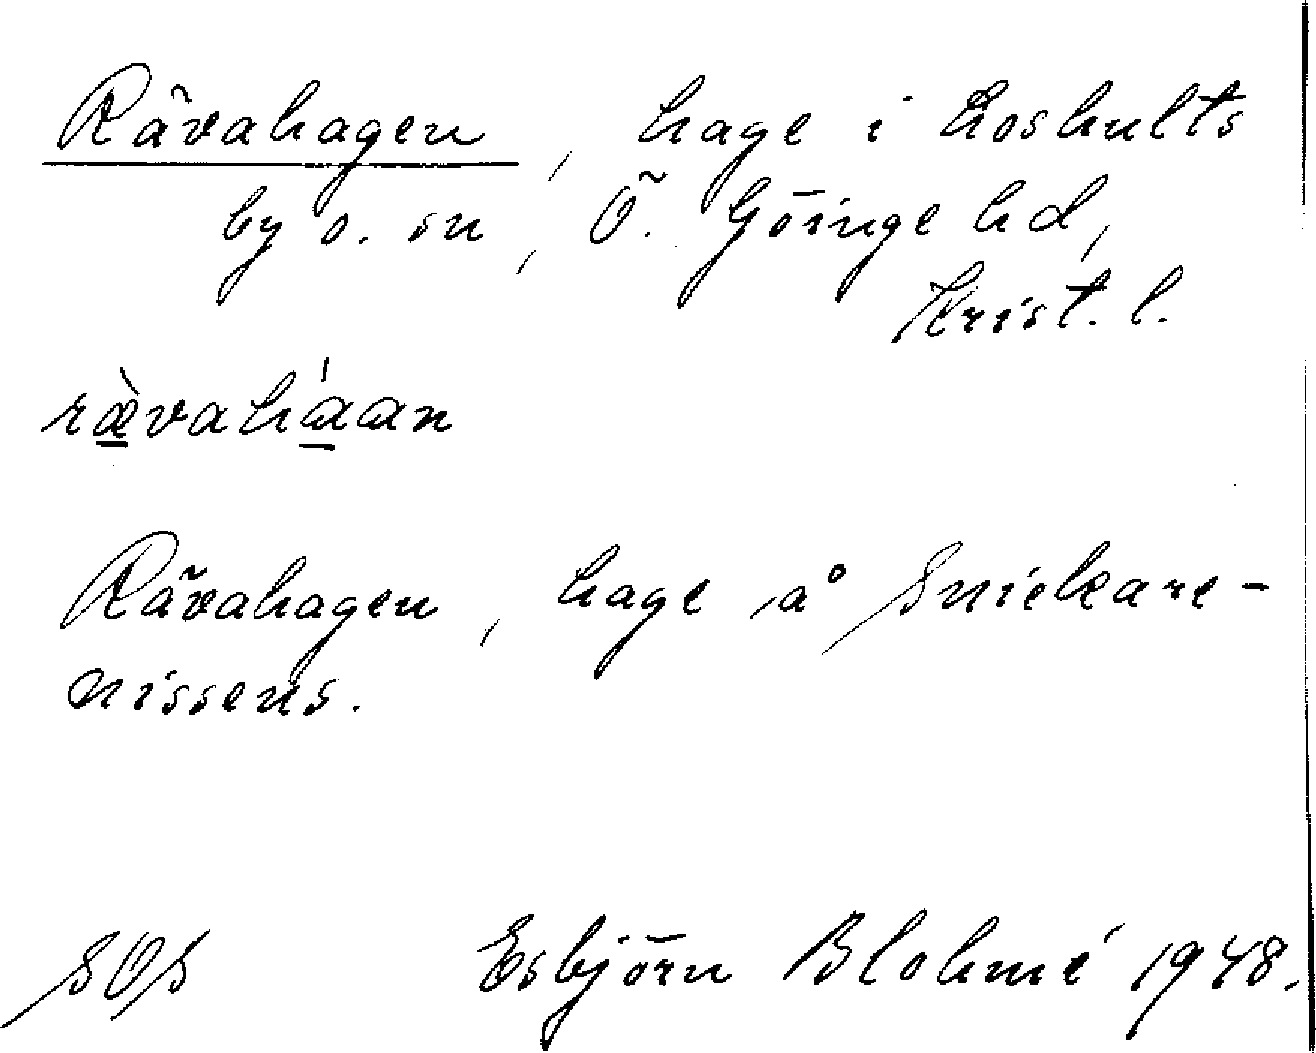 Rävahagen, hage i Loshults
by o. sn, Ö. Göinge hd,
Krist. l.
ræ̀vaháan
Rävahagen, hage å Snickare-
nissens.
SOS Esbjörn Blohmé 1948.